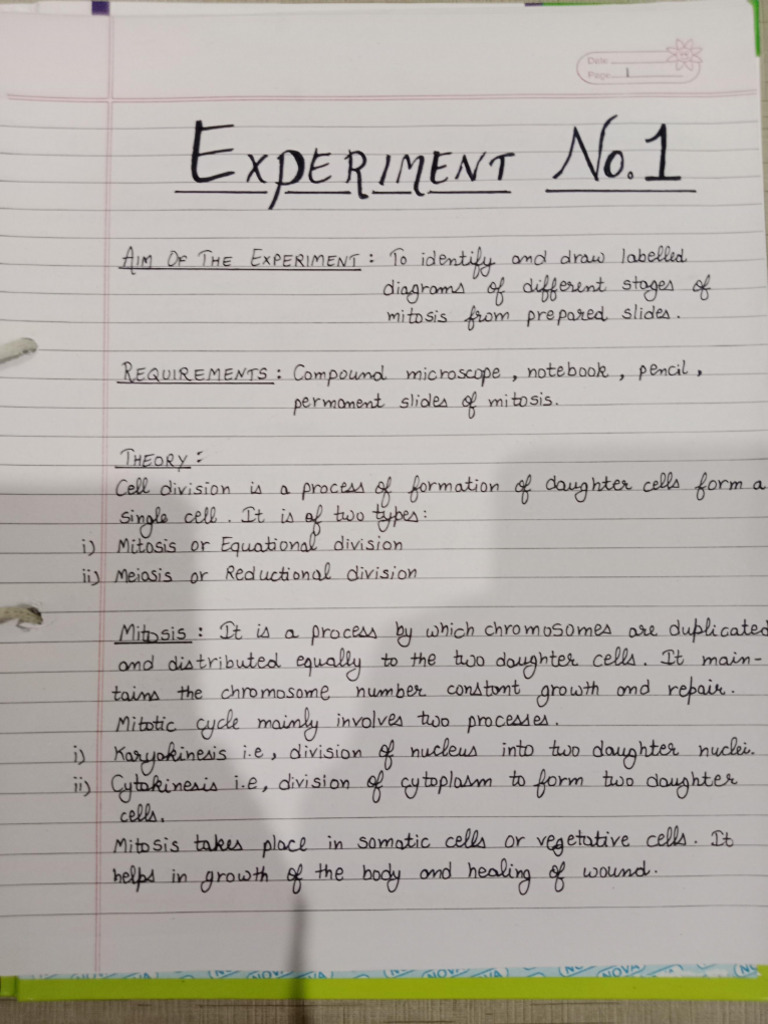 Date
Page 1
EXPERIMENT No. 1
AIM OF THE EXPERIMENT : To identify and draw labelled
diagrams of different stages of
mitosis from prepared slides.
REQUIREMENTS : Compound microscope, notebook, pencil,
permanent slides of mitosis.
THEORY :
Cell division is a process of formation of daughter cells form a
single cell. It is of two types:
i) Mitosis or Equational division
ii) Meiosis or Reductional division
Mitosis : It is a process by which chromosomes are duplicated
and distributed equally to the two daughter cells. It main-
tains the chromosome number constant growth and repair.
Mitotic cycle mainly involves two processes.
i) Karyokinesis i.e, division of nucleus into two daughter nuclei.
ii) Cytokinesis i.e, division of cytoplasm to form two daughter
cells.
Mitosis takes place in somatic cells or vegetative cells. It
helps in growth of the body and healing of wound.
NOVA